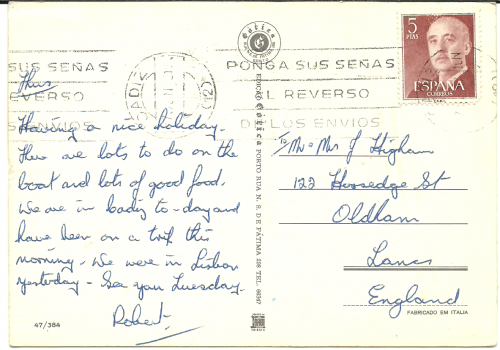 Thurs
Having a nice holiday.
There are lots to do on the
boat and lots of good food.
We are in Cadiz to-day and
have been on a trip this
morning. We were in Lisbon
yesterday - See you Tuesday.
Robert.
47/384
CADIZ
PONGA SUS SEÑAS
AL REVERSO
DE LOS ENVIOS
SUS SEÑAS
REVERSO
ENVIOS
EDIÇÃO Gótica PORTO RUA N. S. DE FÁTIMA
Gótica
5
PTAS
ESPAÑA
CORREOS
To Mr & Mrs J Higham
122 Horsedge St
Oldham
Lancs
England
FABRICADO EM ITALIA